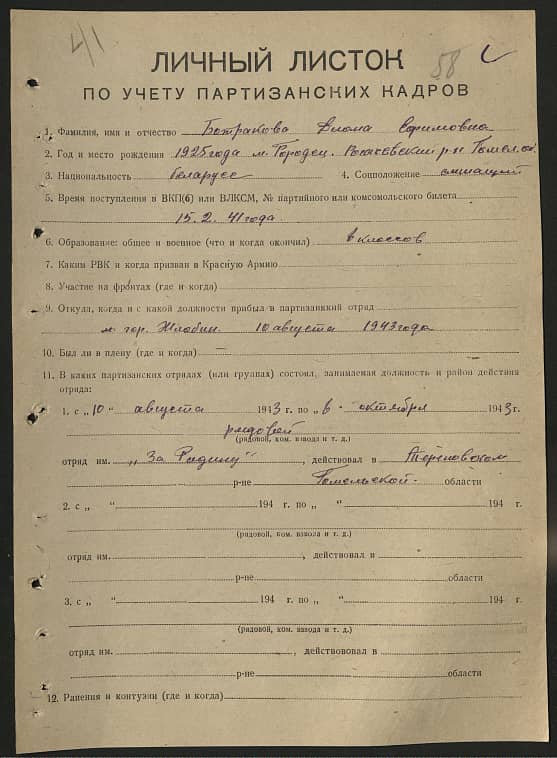 4/1
58
ЛИЧНЫЙ ЛИСТОК
ПО УЧЕТУ ПАРТИЗАНСКИХ КАДРОВ
1. Фамилия, имя и отчество Ботракова Ефимовна
2. Год и место рождения 1925 года м. Городец. Рогачевский р-н Гомел. об.
3. Национальность беларусс 4. Соцположение служащий
5. Время поступления в ВКП(б) или ВЛКСМ, № партийного или комсомольского билета
15. 2. 41 года.
6. Образование: общее и военное (что и когда окончил) 8 классов
7. Каким РВК и когда призван в Красную Армию
8. Участие на фронтах (где и когда)
9. Откуда, когда и с какой должности прибыл в партизанский отряд
гор. Жлобин 10 августа 1943 года
10. Был ли в плену (где и когда)
11. В каких партизанских отрядах (или группах) состоял, занимаемая должность и район действия
отряда:
1. с „10“ августа 1943 г. по „6. октября 1943 г.
рядовой
(рядовой, ком. взвода и т. д.)
отряд им. „За Родину“, действовал в Тереховском
р-не Гомельской. области
2. с „ “ 194 г. по „ “ 194 г.
(рядовой, ком. взвода и т. д.)
отряд им. , действовал в
р-не области
3. с „ “ 194 г. по „ “ 194 г.
(рядовой, ком. взвода и т. д.)
отряд им. , действововал в
р-не области
12. Ранения и контузии (где и когда)